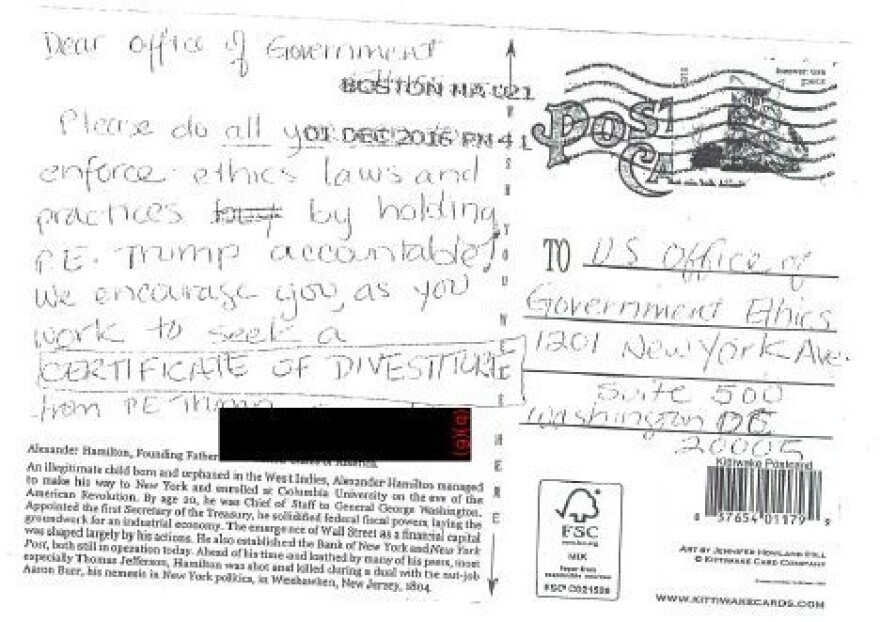 Dear Office of Government
BOSTON MA 021
01 DEC 2016 PM 4 L
Please do all you
enforce ethics laws and
practices by holding
P.E. Trump accountable!
We encourage you, as you
work to seek a
CERTIFICATE OF DIVESTITURE
from PE Trump
(b)(6)
Alexander Hamilton, Founding Father
of America.
An illegitimate child born and orphaned in the West Indies, Alexander Hamilton managed
to make his way to New York and enrolled at Columbia University on the eve of the
American Revolution. By age 20, he was Chief of Staff to General George Washington.
Appointed the first Secretary of the Treasury, he solidified federal fiscal powers, laying the
groundwork for an industrial economy. The emergence of Wall Street as a financial capital
was shaped largely by his actions. He also established the Bank of New York and New York
Post, both still in operation today. Ahead of his time and loathed by many of his peers, most
especially Thomas Jefferson, Hamilton was shot and killed during a dual with the nut-job
Aaron Burr, his nemesis in New York politics, in Weehawken, New Jersey, 1804.
HERE
POST
CA
TO US Office of
Government Ethics
1201 New York Ave.
Suite 500
Washington DC
20005
Kittiwake Postcard
8 37654 01179 9
FSC
MIX
Paper from
responsible sources
FSC® C021538
ART BY JENNIFER HOWLAND HILL
© KITTIWAKE CARD COMPANY
WWW.KITTIWAKECARDS.COM